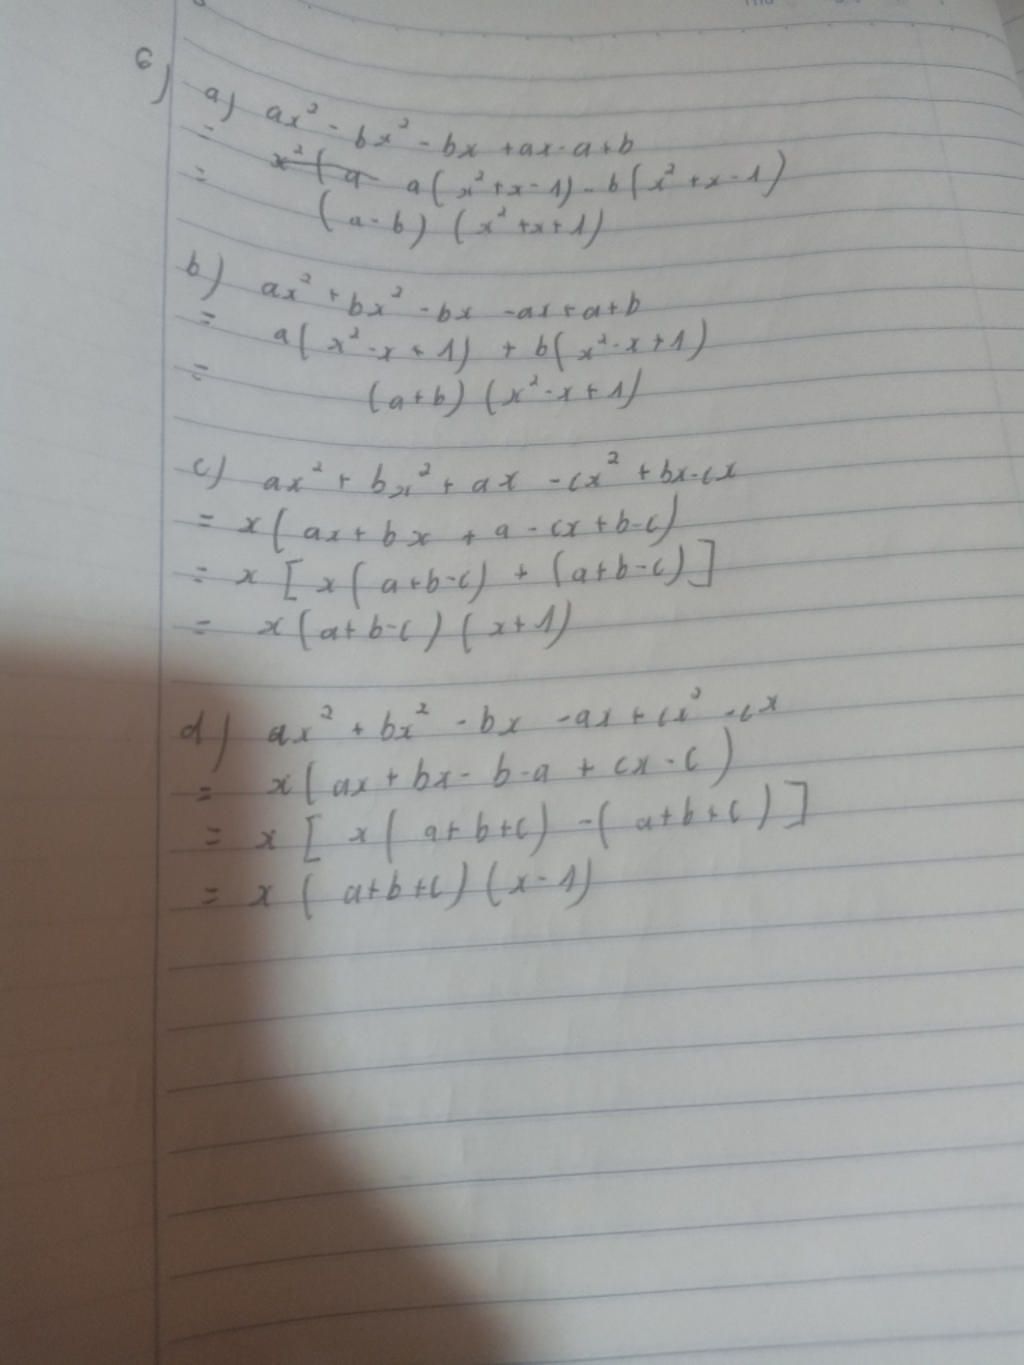 6)
a) ax² - bx² - bx + ax - a + b
= a(x² + x - 1) - b(x² + x - 1)
= (a - b) (x² + x + 1)
b) ax² + bx² - bx - ax + a + b
= a(x² - x + 1) + b(x² - x + 1)
= (a + b) (x² - x + 1)
c) ax² + bx² + ax - cx² + bx - cx
= x(ax + bx + a - cx + b - c)
= x[x(a + b - c) + (a + b - c)]
= x(a + b - c)(x + 1)
d) ax² + bx² - bx - ax + cx² - cx
= x(ax + bx - b - a + cx - c)
= x[x(a + b + c) - (a + b + c)]
= x(a + b + c)(x - 1)